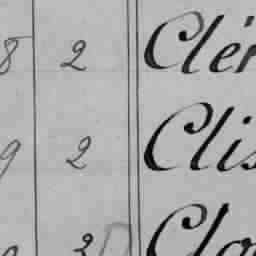 8 2 Clér
9 2 Clis
2 Clo